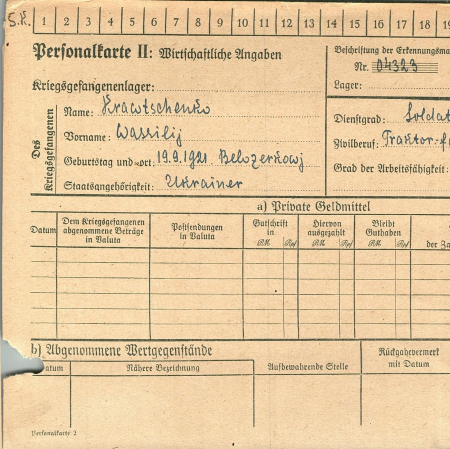 S.K. 1 2 3 4 5 6 7 8 9 10 11 12 13 14 15 16 17 18 19
Personalkarte II: Wirtschaftliche Angaben
Beschriftung der Erkennungsma
Nr. 04323
Kriegsgefangenenlager:
Lager:
Des Kriegsgefangenen
Name: Krawtschenko
Dienstgrad: Soldat
Vorname: Wassilij
Zivilberuf: Traktor-f
Geburtstag und -ort: 19.9.1921. Belozerkowj
Grad der Arbeitsfähigkeit:
Staatsangehörigkeit: Ukrainer
a) Private Geldmittel
Datum
Dem Kriegsgefangenen abgenommene Beträge in Valuta
Postsendungen in Valuta
Gutschrift in
RM Rpf
Hiervon ausgezahlt
RM Rpf
Bleibt Guthaben
RM Rpf
der Za
b) Abgenommene Wertgegenstände
Datum
Nähere Bezeichnung
Aufbewahrende Stelle
Rückgabevermerk mit Datum
Personalkarte 2